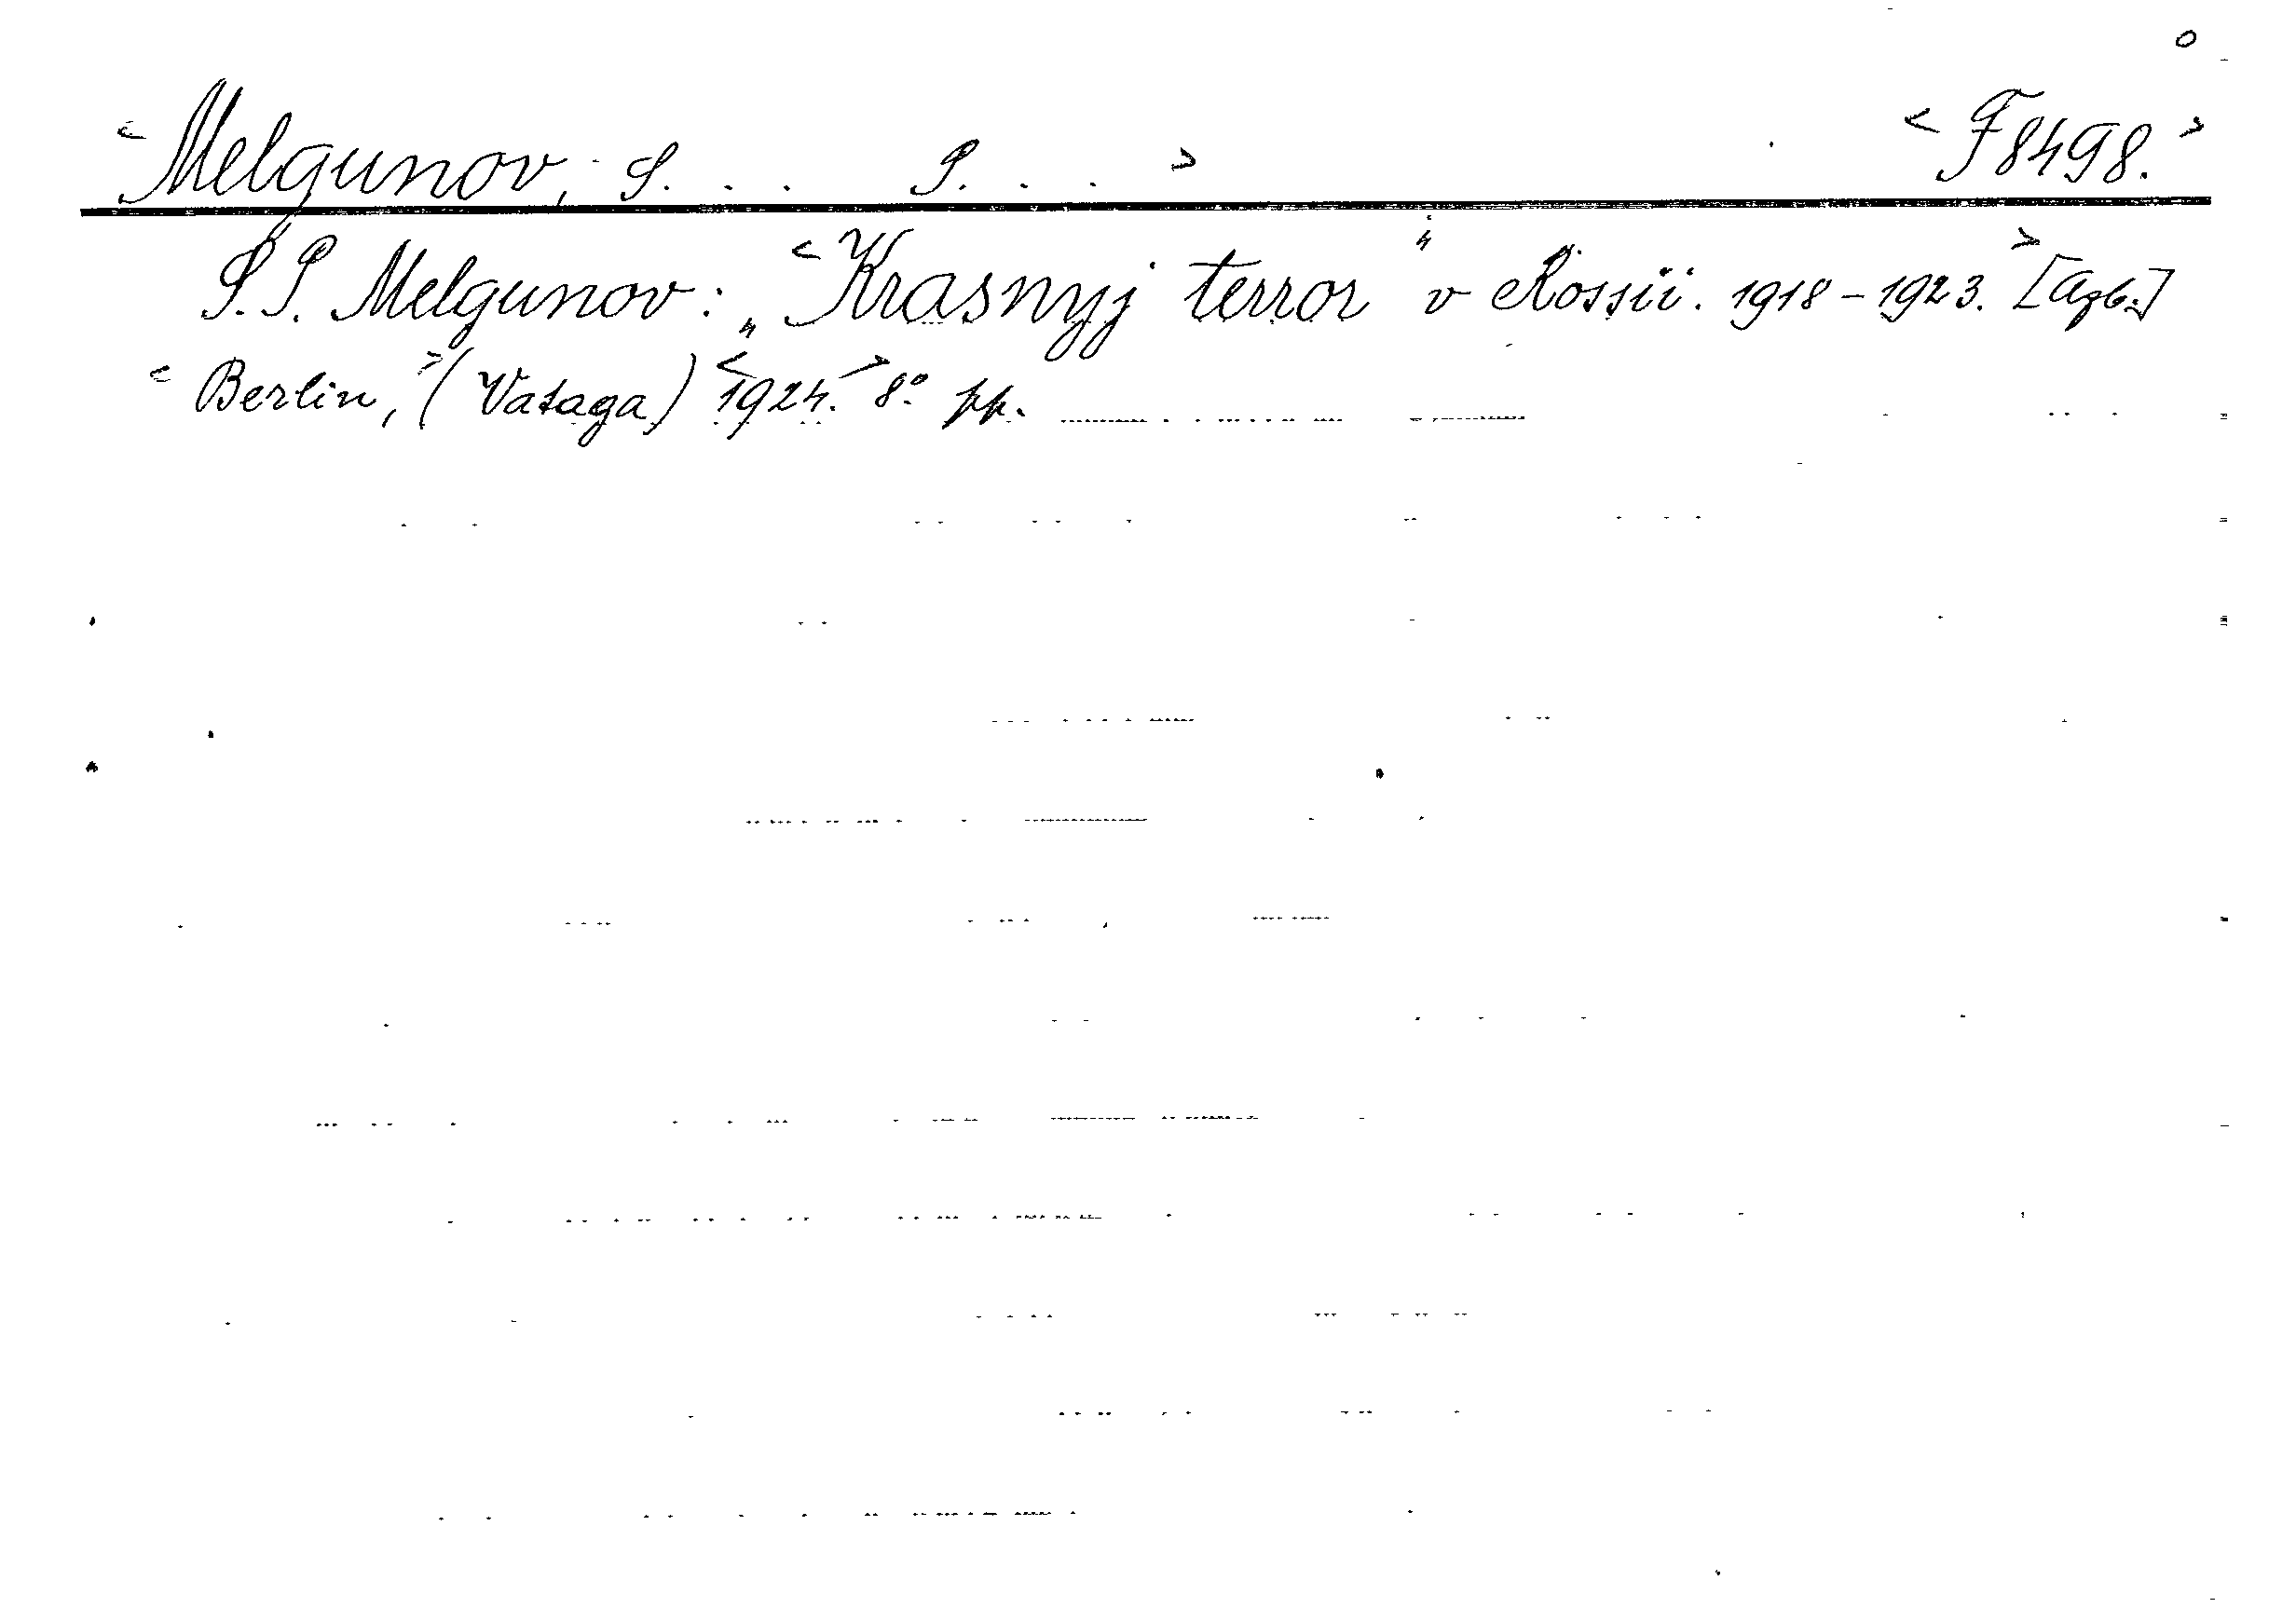 <Melgunov, S. . . P. . . > <F8498.>
S.P. Melgunov: <„Krasnyj terror" v Rossii. 1918-1923.> [Azb.]
<Berlin,> (Vataga) <1924.> 8° pp.